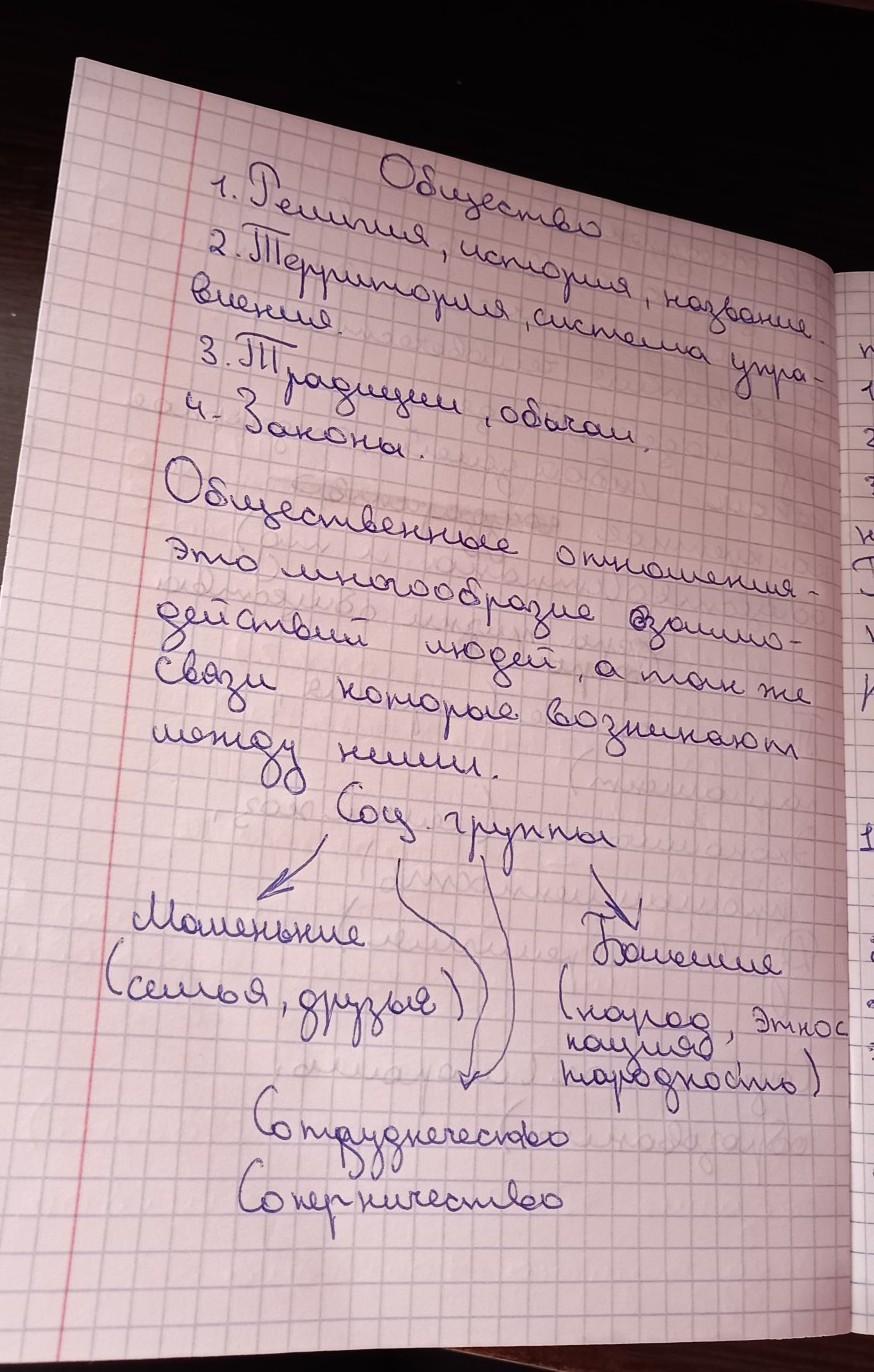 Общество
1. Религия, история, название.
2. Территория, система упра-
вления.
3. Традиции, обычаи.
4. Законы.
Общественные отношения-
это многообразие взаимо-
действий людей, а так же
связи которые возникают
между ними.
Соц. группы
Маленькие
Большие
(семья, друзья)
(народ, этнос
нация
народность)
Сотрудничество
Соперничество